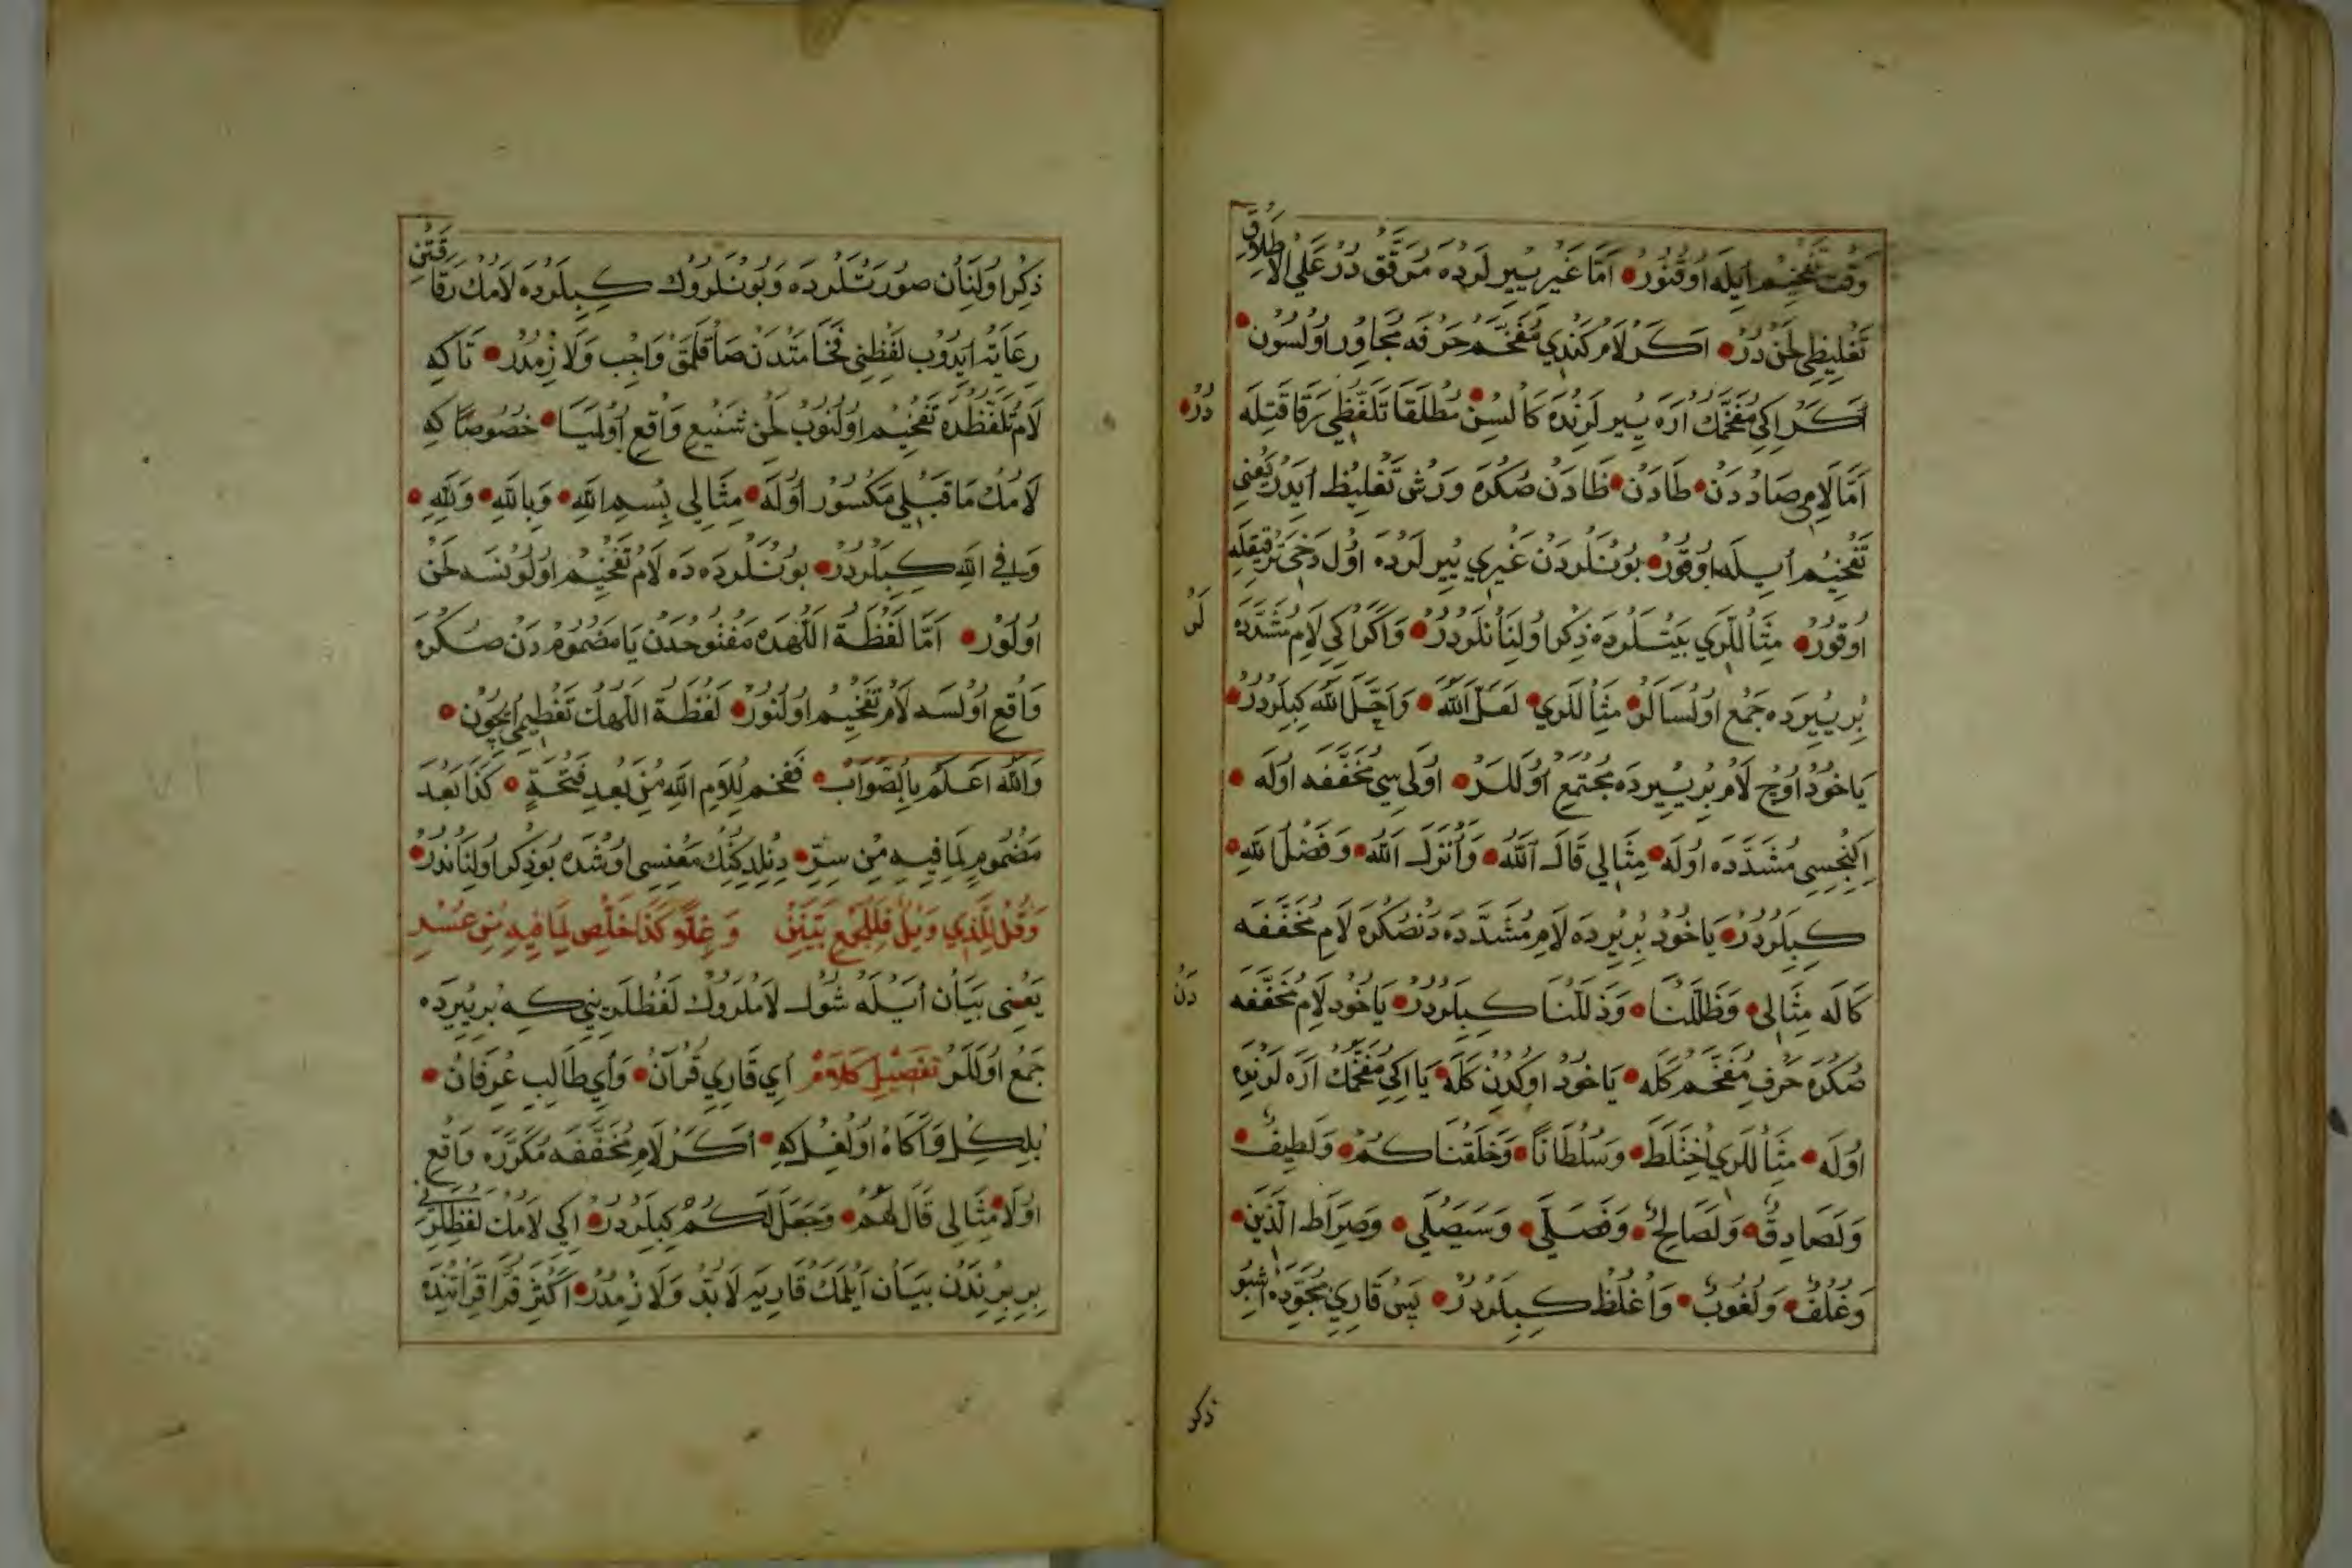 وَقْت تَفْخِيم اَيِلَه اُوقُنُورْ اَمَّا غَيْرِ يِيرلَردَه مُرَقَّق دُرْ عَلَي الْاِطْلَاقِ
تَغْلِيظِي لَحْن دُرْ اَكَرْ لَام كَنْدِي مُفَخَّم حَرْفَه مُجَاوِر اُولْسُون
اَكَرْ اِكِي مُفَخَّمكْ اَرَه يِيرلَرِنْدَه كَالْسُنْ مُطْلَقَا تَلَفُّظِي رِقَّاقَتِلَه دُرْ
اَمَّا لَامِي صَاددَنْ طَادَنْ ظَادَنْ صُكْرَه وَرْش تَغْلِيظ اَيدَرْ يَعْنِي
تَفْخِيم اَيِلَه اُوقُورْ بُونْلَردَنْ غَيْرِي يِيرلَردَه اُول دَخِي تَرْقِيقلَه
اُوقُورْ مِثَاللَرِي بَيْتلَردَه ذِكْر اُولِنَانلَردُرْ وَاَكَر اِكِي لَامِ مُشَدَّدَه
بِر يِيرْدَه جَمْع اُولْسَالَر مِثَاللَرِي لَعَلَّ اللّٰه وَاَحَلَّ اللّٰه كِبِلَردُرْ
يَاخُودْ اُوچ لَام بِر يِيرْدَه مُجْتَمِع اُولَلَرْ اَوَّلِيسِي مُخَفَّفَه اُولَه
اِكِنْجِسِي مُشَدَّدَه اُولَه مِثَالِي قَالَ اللّٰه وَاَنْزَلَ اللّٰه وَفَضْلُ اللّٰهِ
كِبِلَردُرْ يَاخُودْ بِر يِردَه لَامِ مُشَدَّدَه دَنصُكْرَه لَامِ مُخَفَّفَه
كَالَه مِثَالِي وَظَلَّلْنَا وَذَلَّلْنَا كِبِلَردُرْ يَاخُود لَامِ مُخَفَّفَه دَنْ
صُكْرَه حَرْفِ مُفَخَّم كَلَه يَاخُودْ اُوكُدِن كَلَه يَا اِكِي مُفَخَّمكْ اَرَه لَرِنْدَه
اُولَه مِثَاللَرِي اخْتَلَطَ وَسُلْطَانًا وَخَلَقْنَاكُمْ وَلَطِيفٌ
وَلَصَادِقٌ وَلَصَالِحٌ وَفَصَلَّي وَسَيَصْلَي وَصِرَاطَ الَّذِينَ
وَغُلْفٌ وَلُغُوبٌ وَاغْلُظْ كِبِلَردُرْ پَسْ قَارِيِ مُجَوِّدَه اشْبُو
ذكر
ذِكْر اُولِنَان صُورَتلَردَه وَبُونْلَروُك كِبِيلَردَه لَامكْ رِقَّاقَتِنِي
رِعَايَة اَيدُوب لَفْظِنِي فَخَامَتدَنْ صَاقلَمَق وَاجِب وَلَازِمدُرْ تَاكِه
لَامْ تَلَفُّظدَه تَفْخِيم اُولُنُوبْ لَحْنِ شَنِيع وَاقِع اُولْمَيَا خُصُوصًا كِه
لَامكْ مَاقَبْلِي مَكْسُورْ اُولَه مِثَالِي بِسْمِ اللّٰهِ وَبِاللّٰهِ وَلِلّٰهِ
وَفِي اللّٰهِ كِبِيلَردُرْ بُونْلَردَه دَه لَامْ تَفْخِيم اُولُونسَه لَحْنْ
اُولُورْ اَمَّا لَفْظَة اللّٰهدَه مَفْتُوحدَن يَا مَضْمُومدَنْ صُكْرَه
وَاقِع اُولْسَه لَامْ تَفْخِيم اُولُنُورْ لَفْظَة اللّٰهكْ تَعْظِيمِي اِيچُونْ
وَاللّٰهُ اَعْلَمُ بِالصَّوَابْ فَفَخِّم لِلَامِ اللّٰهِ مِنْ بَعْدِ فَتْحَةٍ كَذَا بَعْدَ
مَضْمُومٍ لِمَا فِيهِ مِنْ سِرٍّ دِنِلدِكِنكْ مَعْنِسِي اوشْدَه بُو ذِكْر اُولِنَاندُرْ
وَقُلْ لِلَّذِي وَيْلٌ فَلِلْجَمْعِ بَيِّنَنْ وَغِلًّا كَذَا خَلِّص لِمَا فِيهِ مِنْ عُسْرِ
يَعْنِي بَيَان اَيْلَه شُول لَاملَروُك لَفْظلَرِينِي كِه بِر يِيردَه
جَمْع اُولَلَرْ تَفْصِيلِ كَلَامْ اَي قَارِيِ قُرْآنْ وَاَي طَالِبِ عِرْفَانْ
بِلكِل وَآكَاهْ اُولْغِل كِه اَكَرْ لَامِ مُخَفَّفَه مُكَرَّرَه وَاقِع
اُولَا مِثَالِي قَالَ لَهُمْ وَجَعَلَ لَكُمْ كِبِيلَردُرْ اِكِي لَامكْ لَفْظلَرِنِي
بِر بِرِنْدَنْ بَيَان اَيْلَمَكْ قَارِيَه لَابُدْ وَلَازِمدُرْ اَكْثَرِ قُرَّا قِرَائَتِنْدَه